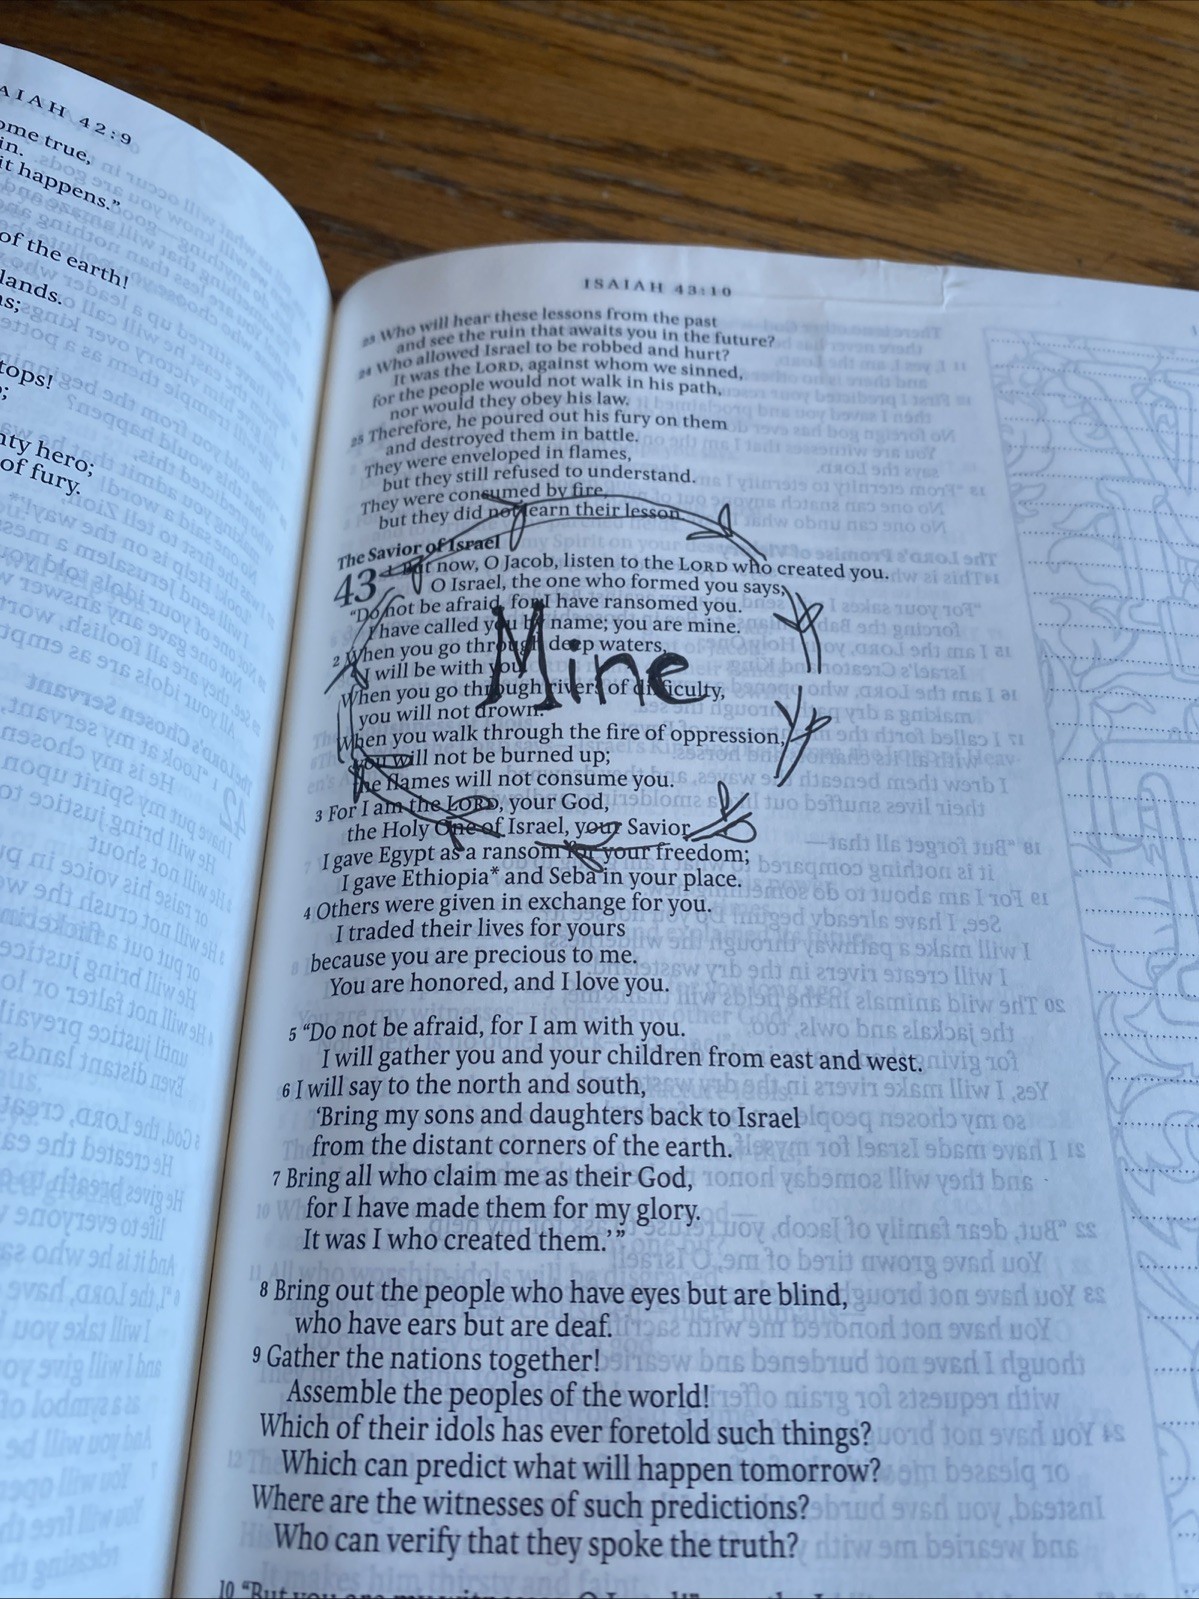 AIAH 42:9
ome true,
in.
it happens."
of the earth!
lands.
s;
tops!
nty hero;
of fury.
ISAIAH 43:10
23 Who will hear these lessons from the past
and see the ruin that awaits you in the future?
24 Who allowed Israel to be robbed and hurt?
It was the LORD, against whom we sinned,
for the people would not walk in his path,
nor would they obey his law.
25 Therefore, he poured out his fury on them
and destroyed them in battle.
They were enveloped in flames,
but they still refused to understand.
They were consumed by fire,
but they did not learn their lesson
The Savior of Israel
43 1 But now, O Jacob, listen to the LORD who created you.
O Israel, the one who formed you says,
"Do not be afraid, for I have ransomed you.
I have called you by name; you are mine.
2 When you go through deep waters,
I will be with you.
Mine
When you go through rivers of difficulty,
you will not drown.
When you walk through the fire of oppression,
you will not be burned up;
the flames will not consume you.
3 For I am the LORD, your God,
the Holy One of Israel, your Savior
I gave Egypt as a ransom for your freedom;
I gave Ethiopia* and Seba in your place.
4 Others were given in exchange for you.
I traded their lives for yours
because you are precious to me.
You are honored, and I love you.
5 "Do not be afraid, for I am with you.
I will gather you and your children from east and west.
6 I will say to the north and south,
'Bring my sons and daughters back to Israel
from the distant corners of the earth.
7 Bring all who claim me as their God,
for I have made them for my glory.
It was I who created them.'"
8 Bring out the people who have eyes but are blind,
who have ears but are deaf.
9 Gather the nations together!
Assemble the peoples of the world!
Which of their idols has ever foretold such things?
Which can predict what will happen tomorrow?
Where are the witnesses of such predictions?
Who can verify that they spoke the truth?
10 "But you are my